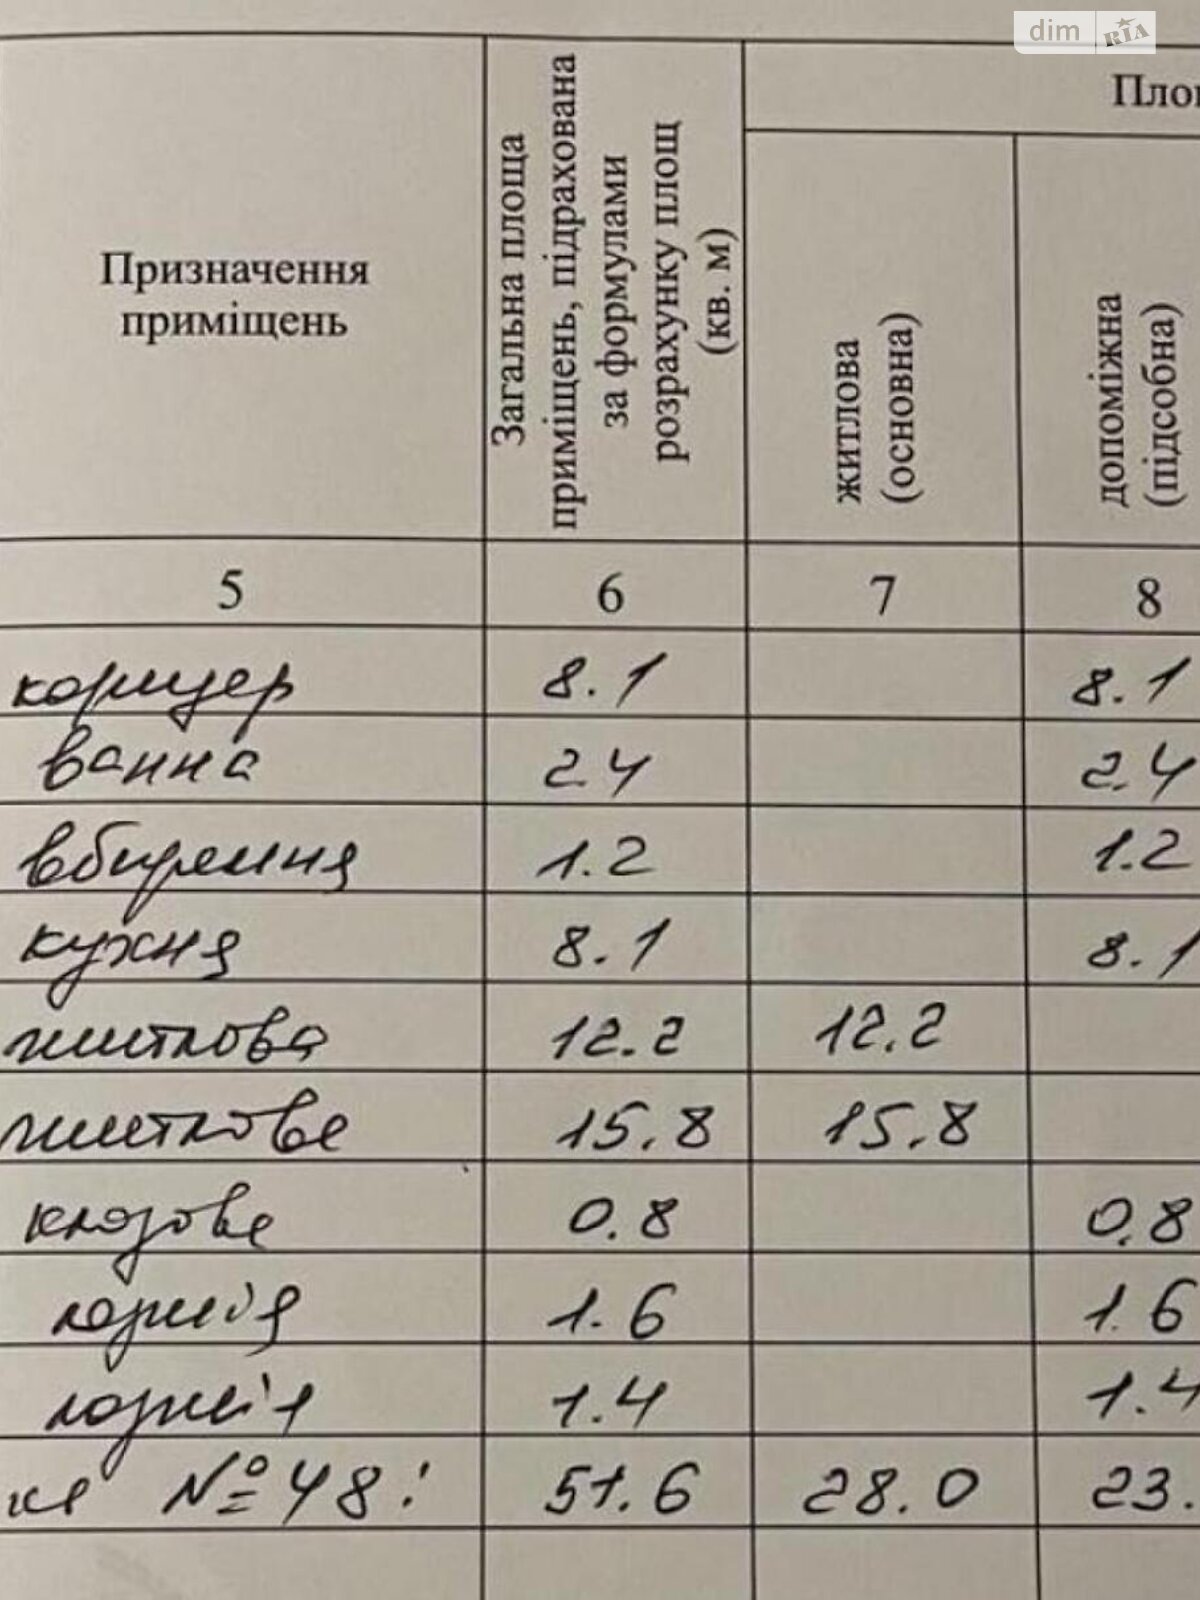 dim RIA
Призначення
приміщень
Загальна площа
приміщень, підрахована
за формулами
розрахунку площ
(кв. м)
житлова
(основна)
допоміжна
(підсобна)
5 6 7 8
коридер 8.1 8.1
ванна 2.4 2.4
вбиремня 1.2 1.2
кухня 8.1 8.1
житлова 12.2 12.2
житлове 15.8 15.8
0.8 0.8
лоджія 1.6 1.6
лоджія 1.4 1.4
№48: 51.6 28.0 23.